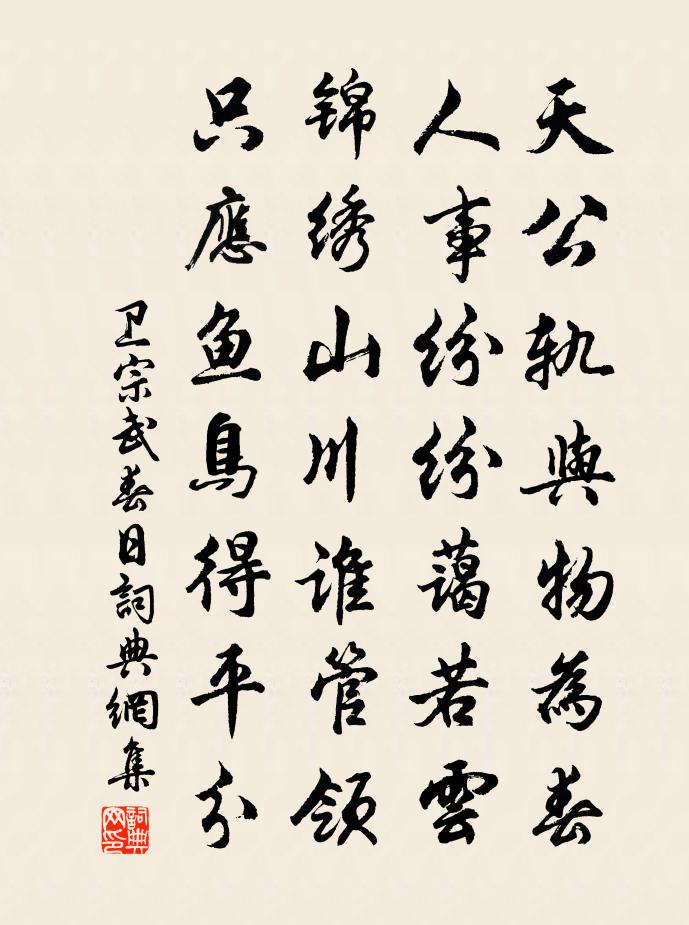 天公軌與物為春
人事紛紛藹若雲
锦绣山川誰管領
只應鱼鳥得平分
卫宗武春日詞典網集
詞典網印